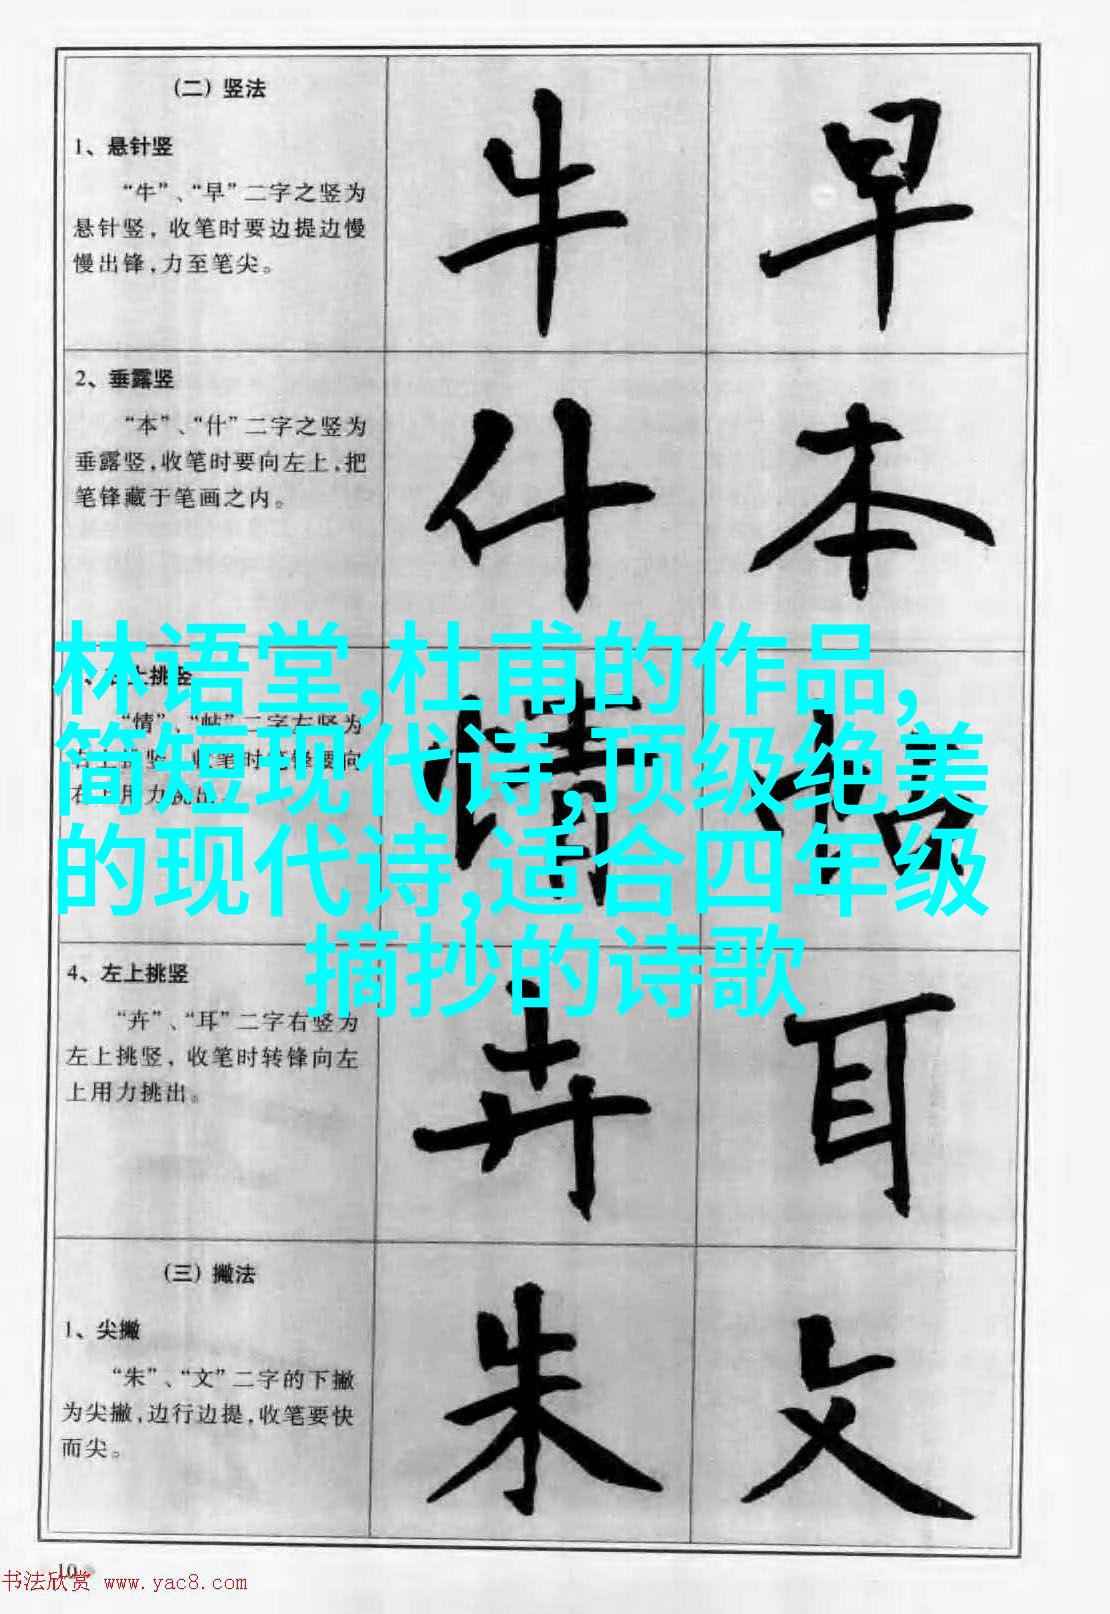 （二）竖法
1、悬针竖
“牛”、“早”二字之竖为
悬针竖，收笔时要边提边慢
慢出锋，力至笔尖。
牛 早
2、垂露竖
“本”、“什”二字之竖为
垂露竖，收笔时要向左上，把
笔锋藏于笔画之内。
什 本
林语堂,杜甫的作品,
简短现代诗,顶级绝美
的现代诗,适合四年级
摘抄的诗歌
上挑竖
“情”、“帖”二字右竖为
情 帖
4、左上挑竖
“卉”、“耳”二字右竖为
左上挑竖，收笔时转锋向左
上用力挑出。
卉 耳
（三）撇法
1、尖撇
“朱”、“文”二字的下撇
为尖撇，边行边提，收笔要快
而尖。
朱 文
10
书法欣赏 www.yac8.com